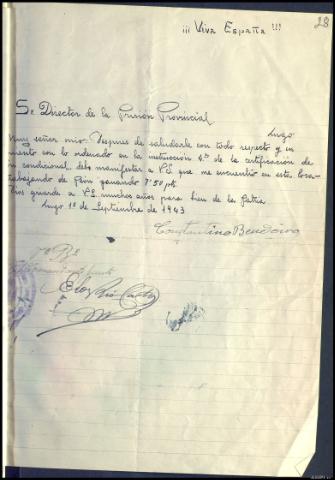 ¡¡¡ Viva España !!!
28
Sr Director de la Prisión Provincial
Lugo
Muy señor mio: Despues de saludarle con todo respeto y en
miento con lo ordenado en la instrucción 4ª de la certificación de
ón condicional, debo manifestar a VS que me encuentro en esta loca-
trabajando de Peón ganando 7'50 pts.
Dios guarde a V.S. muchos años para bien de la Patria
Lugo 1º de Septiembre de 1943
Constantino
Vº Bº